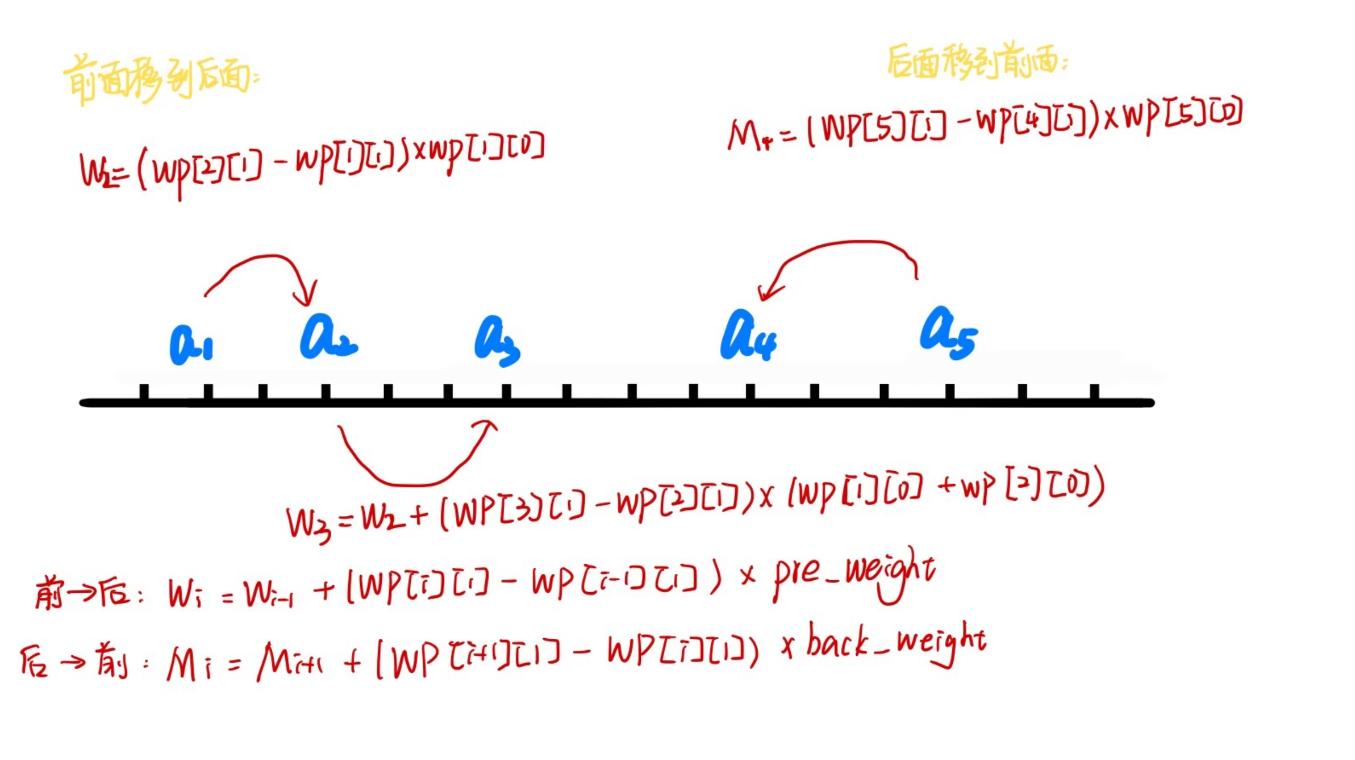 前面移到后面:
后面移到前面:
W₂=(WP[2][1]-WP[1][1])×WP[1][0]
M₄=(WP[5][1]-WP[4][1])×WP[5][0]
a₁ a₂ a₃ a₄ a₅
W₃=W₂+(WP[3][1]-WP[2][1])×(WP[1][0]+WP[2][0])
前→后: Wᵢ=Wᵢ₋₁+(WP[i][1]-WP[i-1][1])×pre_weight
后→前: Mᵢ=Mᵢ₊₁+(WP[i+1][1]-WP[i][1])×back_weight